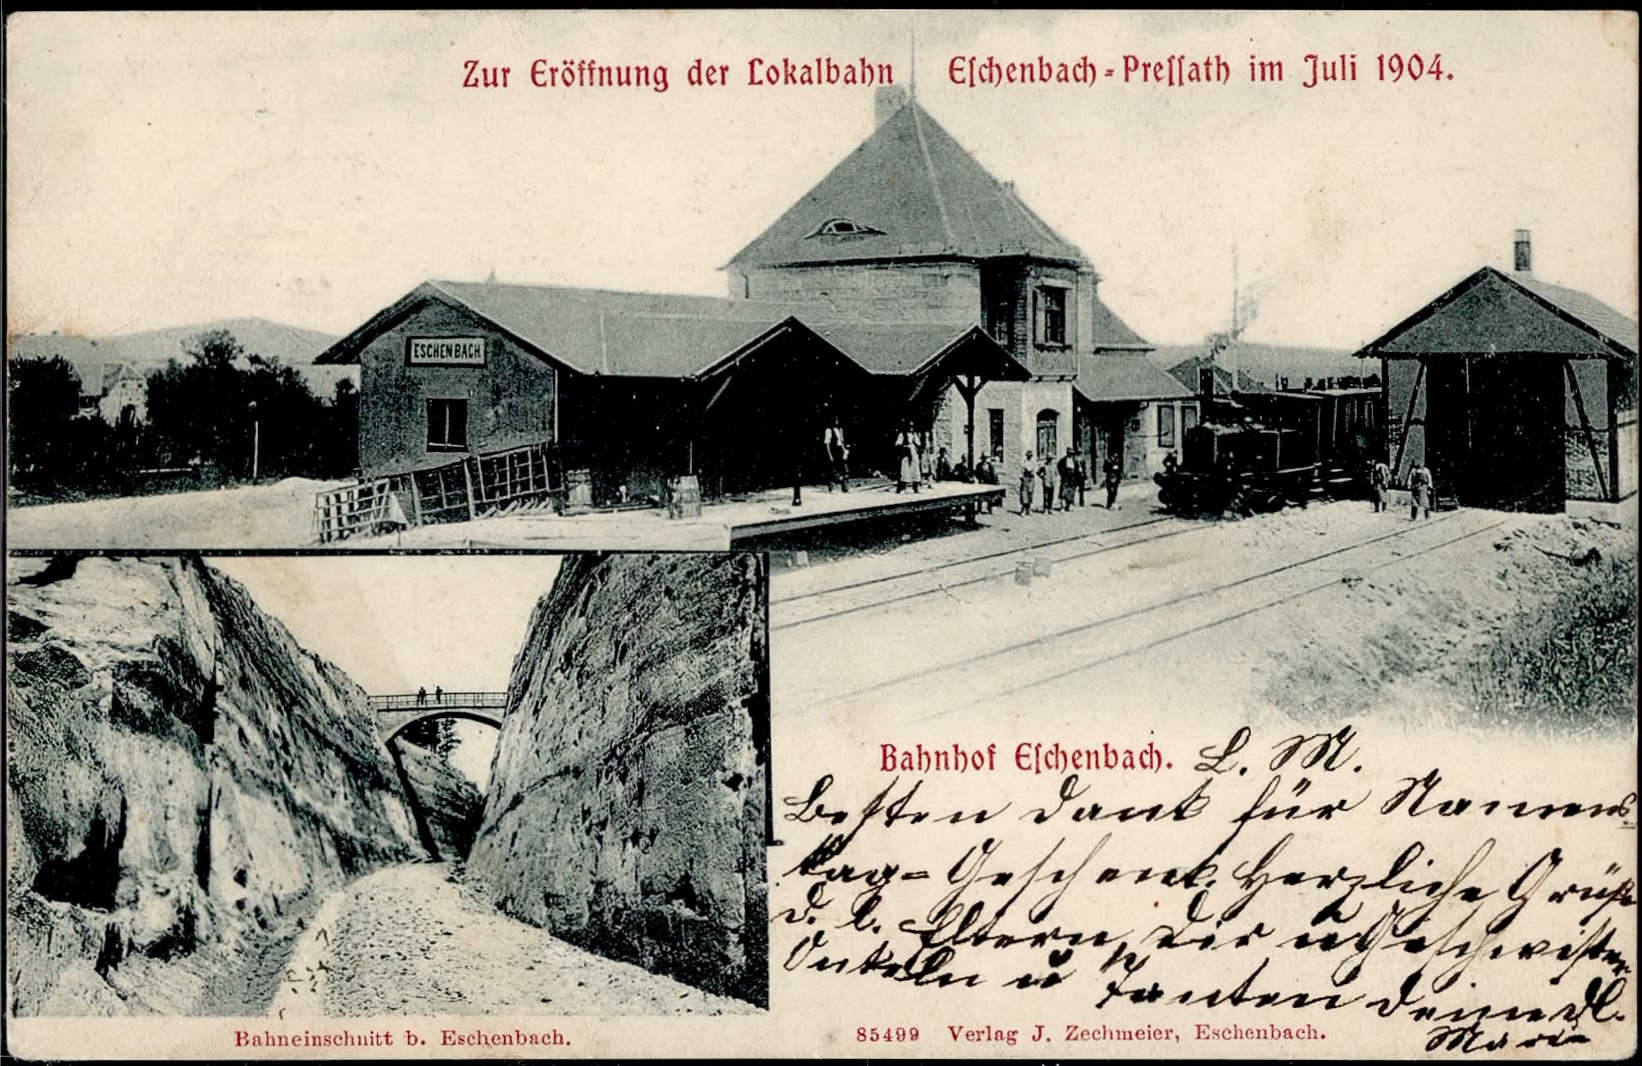 Zur Eröffnung der Lokalbahn Eſchenbach-Preſſath im Juli 1904.
ESCHENBACH
Bahnhof Eſchenbach.
L. M.
Besten Dank für Namens-
tag-Geschenk. Herzliche Grüße
d. l. Eltern, Dir u Geschwistern
Onkeln u Tanten Deine dl.
Marie
Bahneinschnitt b. Eschenbach.
85499 Verlag J. Zechmeier, Eschenbach.